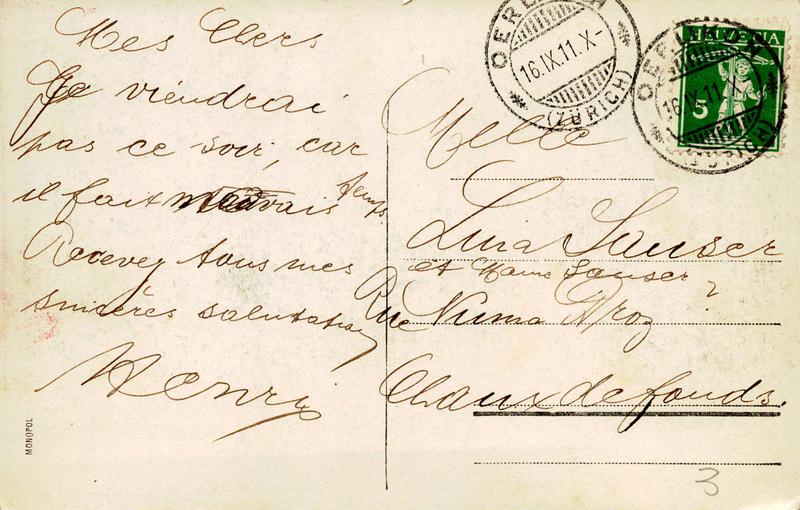 Mes Chers
Je viendrai
pas ce soir, car
il fait mauvais temps.
Recevez tous mes
sincères salutations
Henri
MONOPOL
OERLIKON
16.IX.11.X-
(ZÜRICH)
HELVETIA
5
OERLIKON
16.IX.11.X-
(ZÜRICH)
Melle
Lina Sauser
et Mame Sauser
Rue Numa Droz ?
Chaux de fonds.
3